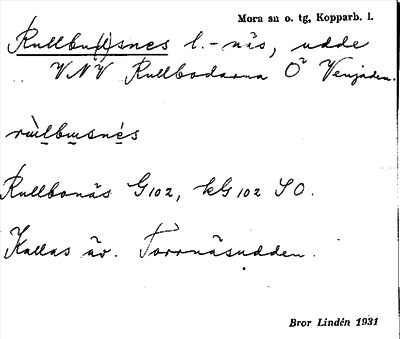 Mora sn o. tg, Kopparb. l.
Rullbu(l)snes l.-näs, udde
VNV Rullbodarna Ö Venjaden.
rùlbusnés
Rullbonäs G102, kG102 SO.
Kallas äv. Torrnäsudden.
Bror Lindén 1931